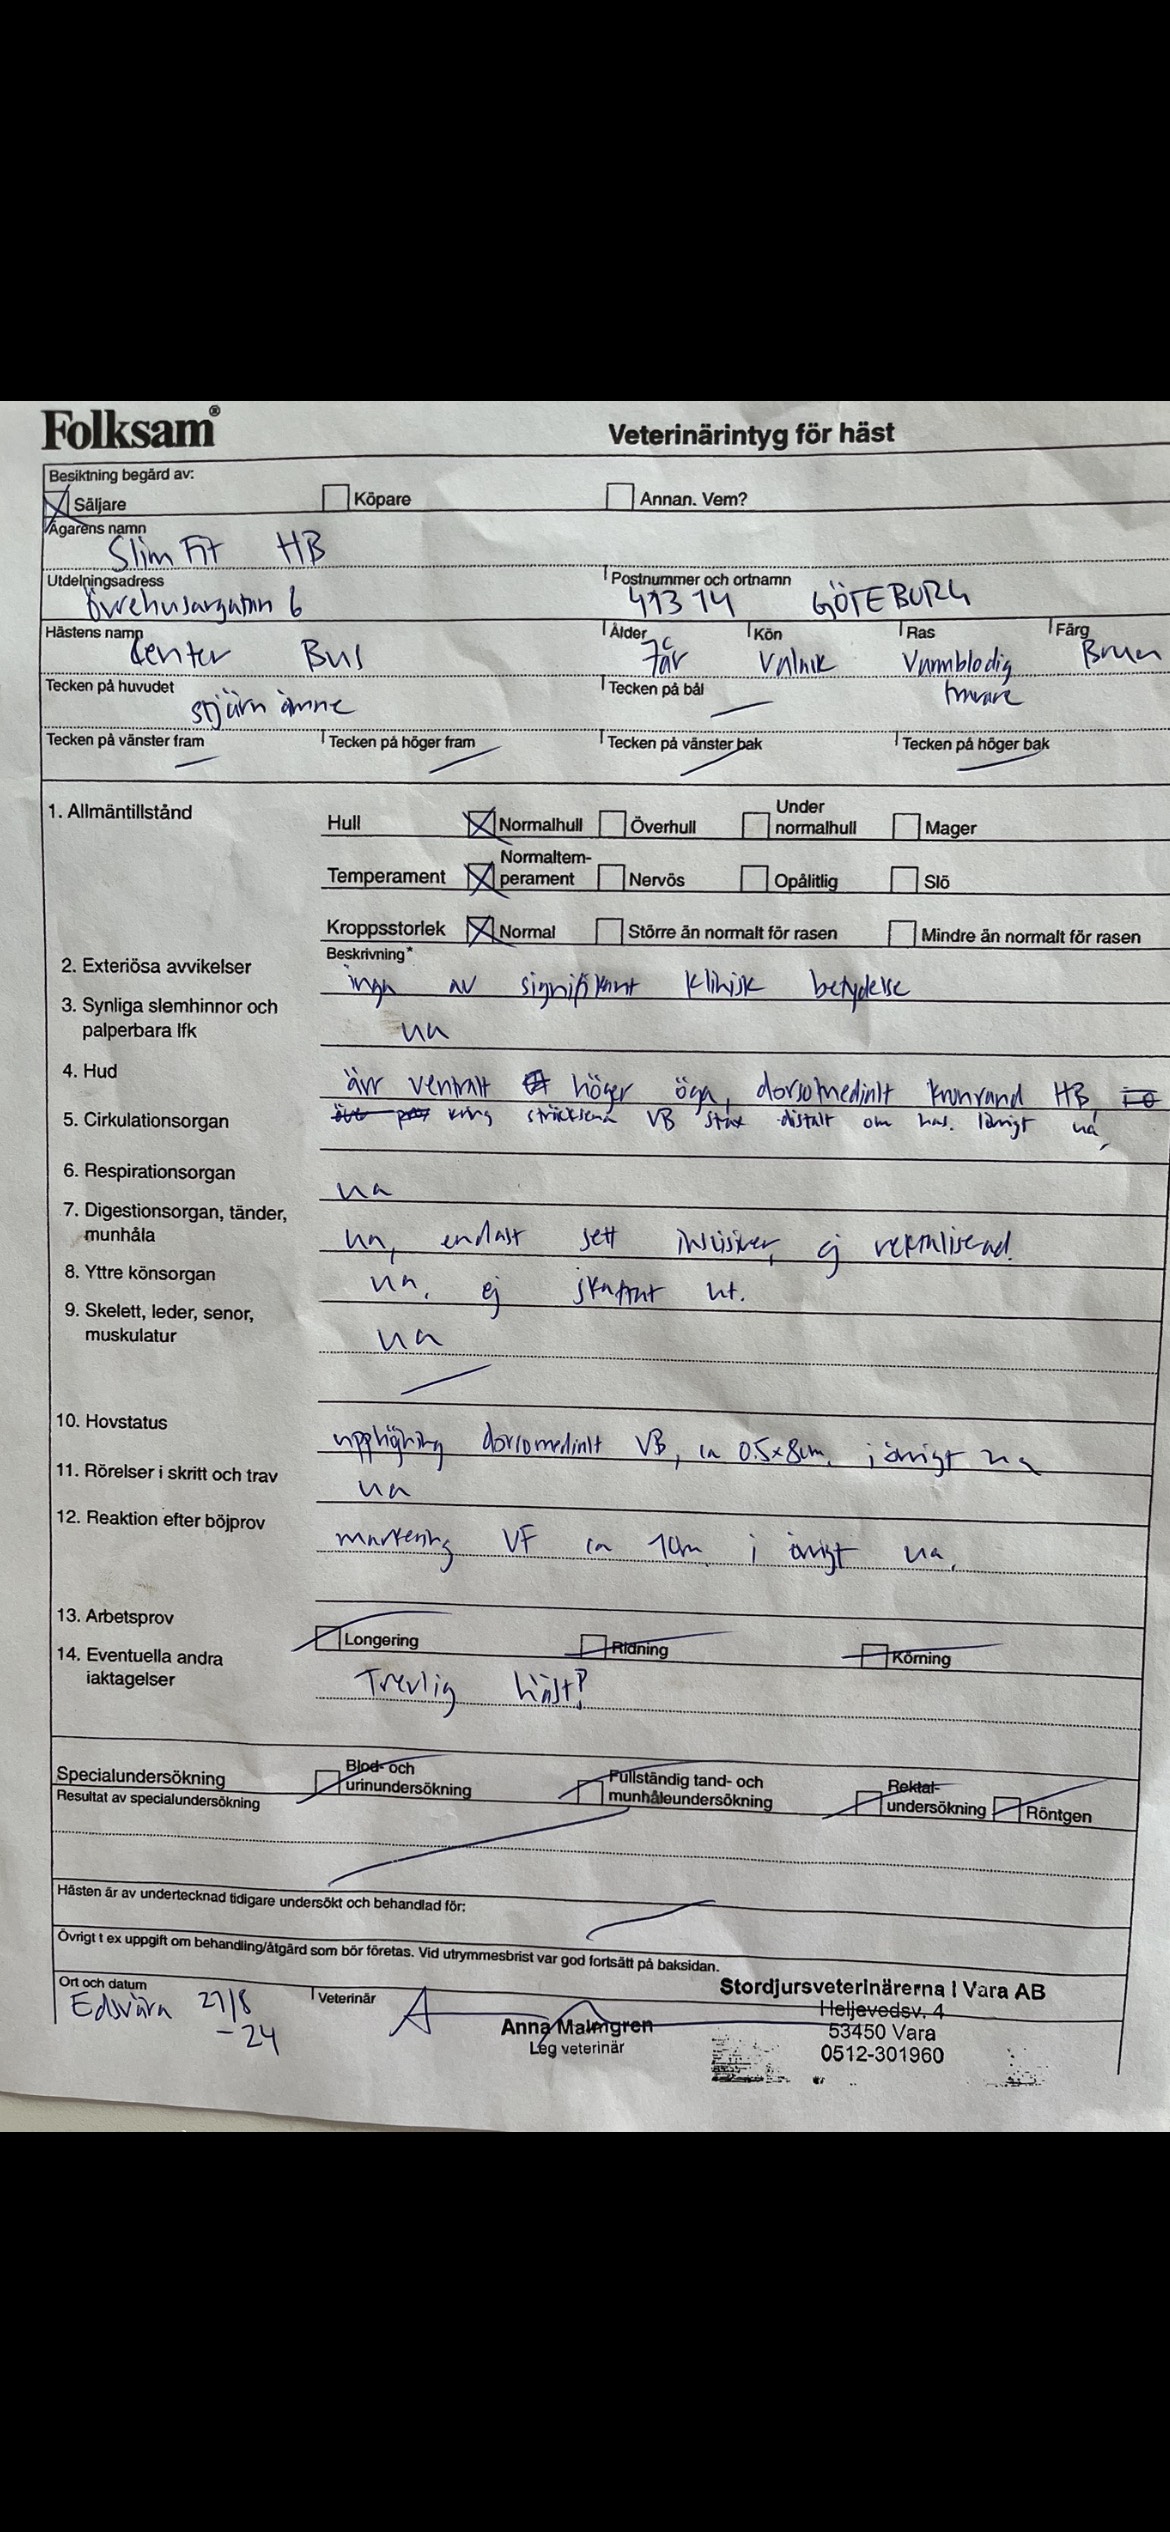 Folksam®
Veterinärintyg för häst
Besiktning begärd av:
Säljare Köpare Annan. Vem?
Ägarens namn
Slim Fit HB
Utdelningsadress Postnummer och ortnamn
6 413 14 GÖTEBORG
Hästens namn Ålder Kön Ras Färg
Center Bus 7år Valack Varmblodig Brun
travare
Tecken på huvudet Tecken på bål
stjärnämne
Tecken på vänster fram Tecken på höger fram Tecken på vänster bak Tecken på höger bak
1. Allmäntillstånd
Hull Normalhull Överhull Under normalhull Mager
Temperament Normaltem-perament Nervös Opålitlig Slö
Kroppsstorlek Normal Större än normalt för rasen Mindre än normalt för rasen
Beskrivning*
2. Exteriösa avvikelser inga av signifikant klinisk betydelse
3. Synliga slemhinnor och
palperbara lfk ua
4. Hud ärr ventralt höger öga, dorsomedialt kronrand HB,
5. Cirkulationsorgan kring sträcksena VB strax distalt om has. I övrigt ua,
6. Respirationsorgan ua
7. Digestionsorgan, tänder,
munhåla ua, endast sett incisiver, ej rektaliserad.
8. Yttre könsorgan ua. ej skaftat ut.
9. Skelett, leder, senor,
muskulatur ua
10. Hovstatus upphöjning dorsomedialt VB, ca 0.5x8cm. i övrigt ua
11. Rörelser i skritt och trav ua
12. Reaktion efter böjprov markering VF ca 10m. i övrigt ua.
13. Arbetsprov
Longering Ridning Körning
14. Eventuella andra
iaktagelser Trevlig häst!
Specialundersökning Blod- och urinundersökning Fullständig tand- och munhåleundersökning Rektal-undersökning Röntgen
Resultat av specialundersökning
Hästen är av undertecknad tidigare undersökt och behandlad för:
Övrigt t ex uppgift om behandling/åtgärd som bör företas. Vid utrymmesbrist var god fortsätt på baksidan.
Ort och datum Veterinär
Edsvära 27/8
-24
Anna Malmgren
Leg veterinär
Stordjursveterinärerna i Vara AB
Heljevedsv. 4
53450 Vara
0512-301960